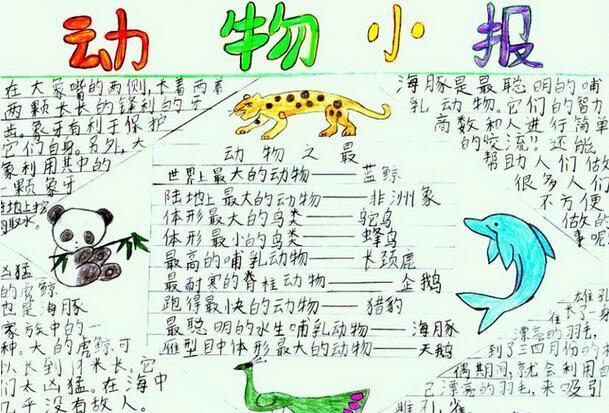 动物小报
在大象嘴的两侧,长着两着
两颗长长的锋利的牙
齿。象牙有利于保护
它们自身。另外,大
象利用其中的
一颗象牙
在地上挖
取水。
动物之最
世界上最大的动物——蓝鲸
陆地上最大的动物——非洲象
体形最大的鸟类——鸵鸟
体形最小的鸟类——蜂鸟
最高的哺乳动物——长颈鹿
最耐寒的脊柱动物——企鹅
跑得最快的动物——猎豹
最聪明的水生哺乳动物——海豚
雁型目中体形最大的动物——天鹅
海豚是最聪明的哺
乳动物。它们的智力
商数和人进行简单
的“交流”还能
帮助人们做
很多人们
不方便
做的
事呢
凶猛
的虎鲸
也是海豚
家族中的一
种。大的虎鲸可
以长到 米长。它
们太凶猛。在海中
几乎没有敌人。
雄孔
雀长了一身
漂亮的羽毛,
到了三四月份的
偶期间,就会利用自
己漂亮的羽毛,来吸引
雌孔雀